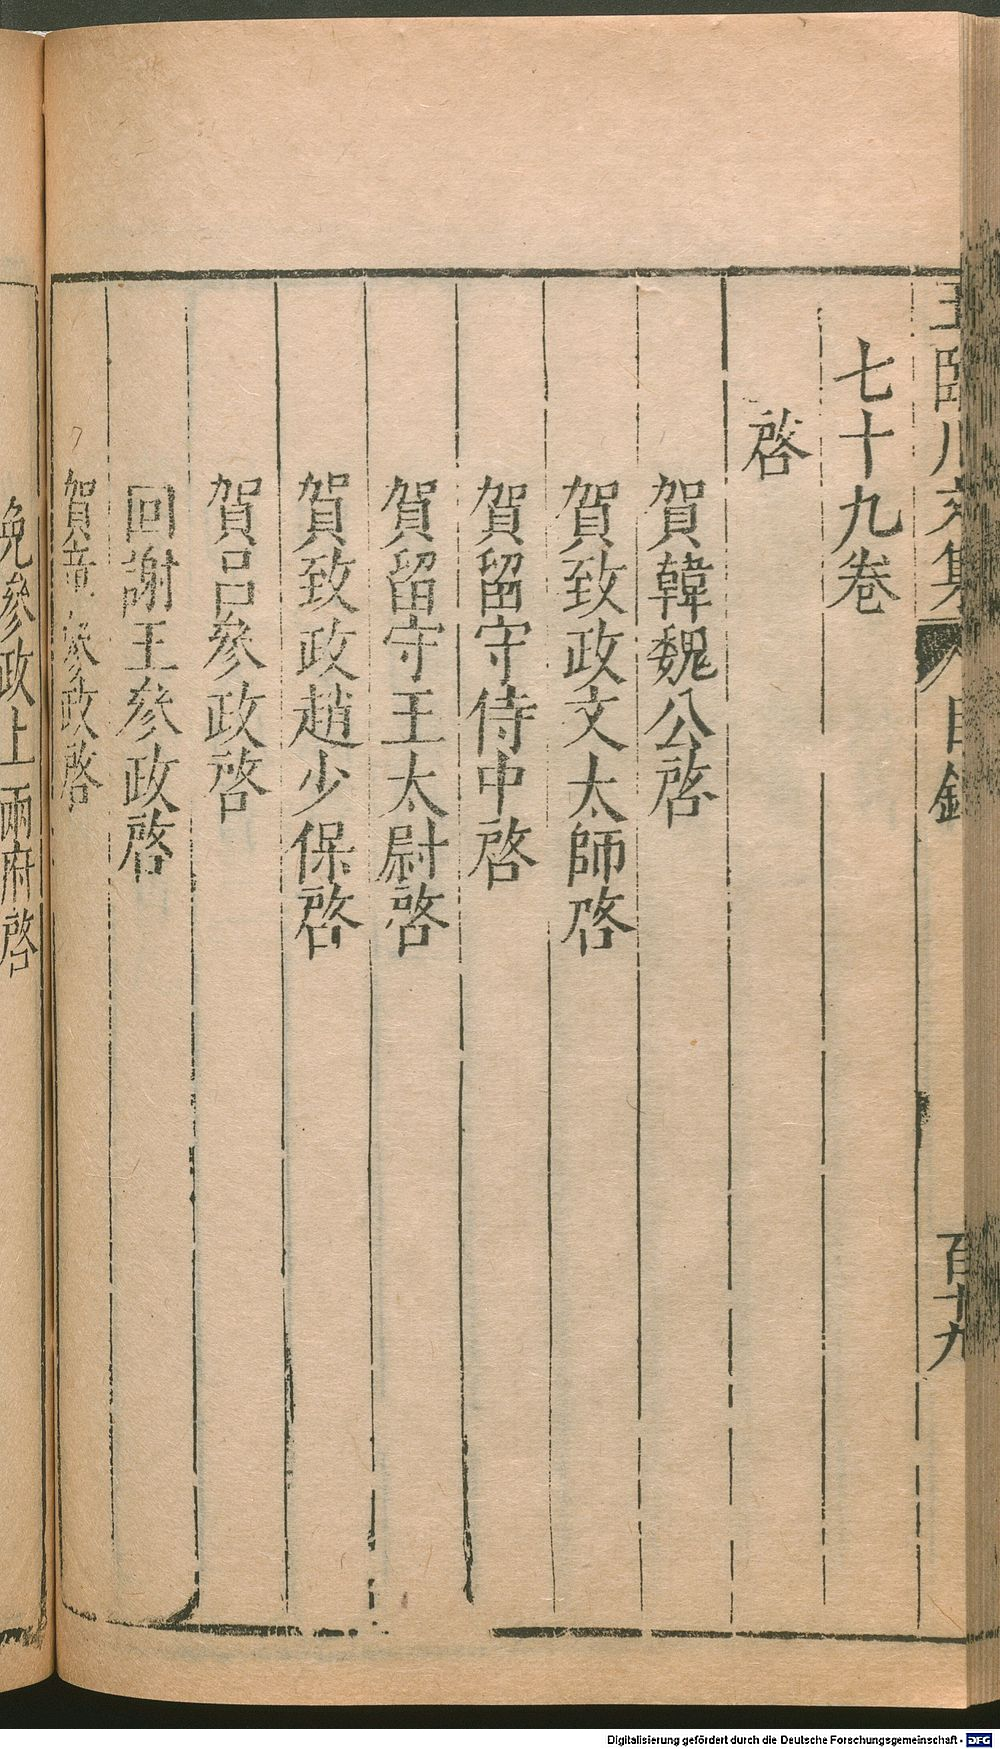 王臨川文集 目錄 百十九
七十九卷
啓
賀韓魏公啓
賀致政文太師啓
賀留守侍中啓
賀留守王太尉啓
賀致政趙少保啓
賀呂參政啓
回謝王參政啓
賀章參政啓
免參政上兩府啓
Digitalisierung gefördert durch die Deutsche Forschungsgemeinschaft - DFG